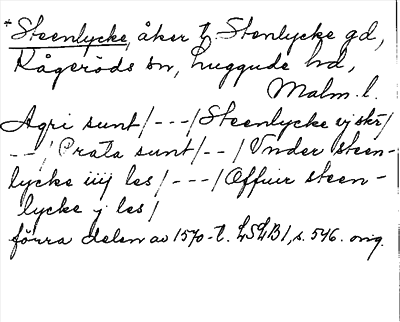 + Steenlycke, åker t. Stenlycke gd,
Kågeröds sn, Luggude hd,
Malm. l.
Agri sunt/---/Steenlycke vj skr/
--/Prata sunt/--/Vnder steen-
lycke iiij les/---/Offuir steen-
lycke j les/
förra delen av 1570-t. LSLB1, s. 546. orig.